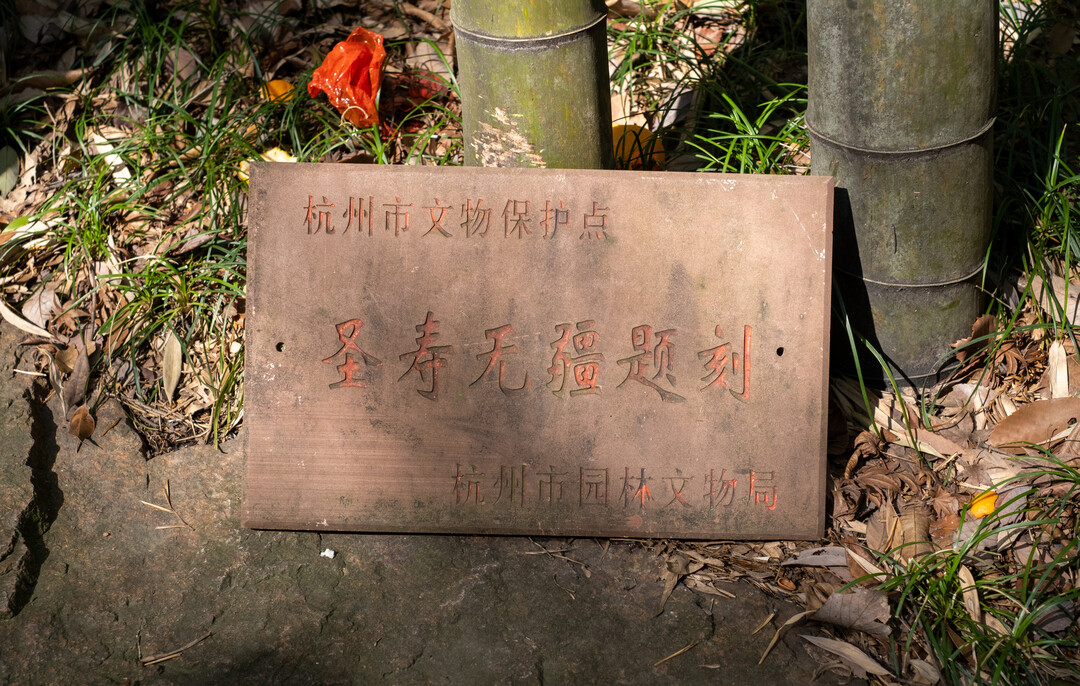 杭州市文物保护点
圣寿无疆题刻
杭州市园林文物局